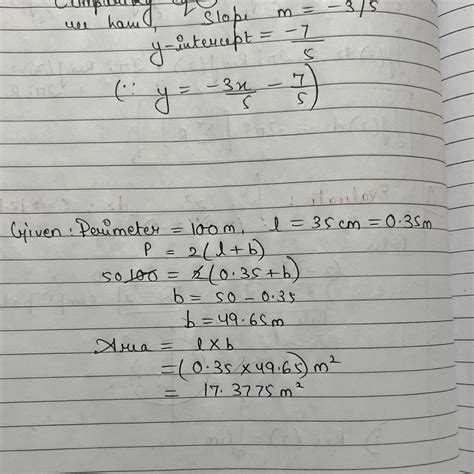 Comparing
we have, Slope m = -3/5
y-intercept = -7/5
(∵ y = -3x/5 - 7/5)
Given: Perimeter = 100m, l = 35 cm = 0.35m
P = 2(l+b)
50 100 = 2(0.35+b)
b = 50 - 0.35
b = 49.65m
Area = l×b
= (0.35 × 49.65) m²
= 17.3775 m²